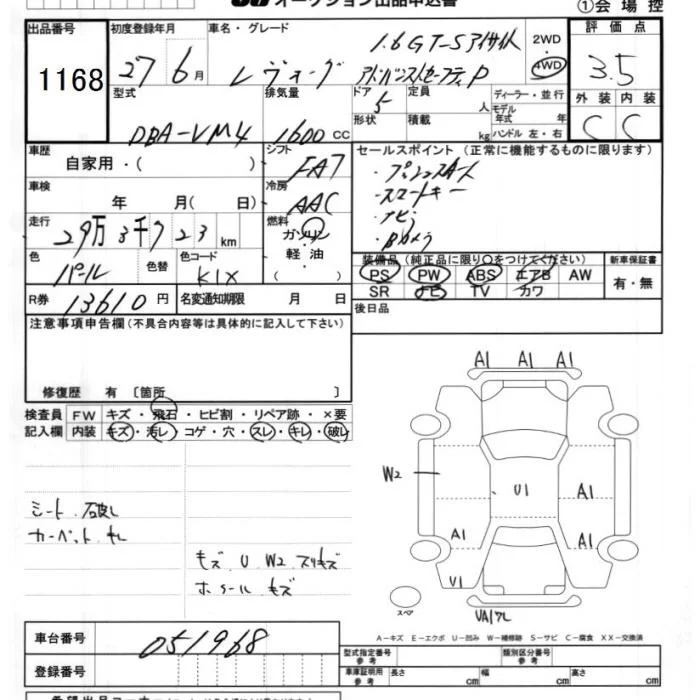 オークション出品申込書
①会場控
出品番号 初度登録年月 車名・グレード 2WD 評価点
1168 27 6月 レヴォーグ 1.6 GT-Sアイサイト 4WD 3.5
アドバンスドセーフティP
型式 排気量 ドア 定員 ディーラー・並行 外装 内装
5 人 モデル年式 年
DBA-VM4 1600 CC 形状 積載 kg ハンドル 左・右 C C
車歴 シフト セールスポイント (正常に機能するものに限ります)
自家用・( ) FA7 ・プッシュスタート
車検 冷房 ・スマートキー
年 月( 日) AAC ・ナビ
走行 燃料 ・Bカメラ
29万3千723km ガソリン
軽・油
( )
色 色替 色コード 装備品 (純正品に限り○をつけてください) 新車保証書
パール K1X PS PW ABS エアB AW 有・無
SR ナビ TV カワ
R券 13610円 名変通知期限 月 日 後日品
注意事項申告欄 (不具合内容等は具体的に記入して下さい)
修復歴 有 〔箇所 〕
検査員 FW キズ・飛石・ヒビ割・リペア跡・×要
記入欄 内装 キズ・汚レ・コゲ・穴・スレ・キレ・破レ
A1 A1 A1
W2 U1 A1
シート 破レ
カーペット キレ
A1 A1
キズ U W2 スリキズ
ホイール キズ
U1
スペア
UA1ワレ
A-キズ E-エクボ U-凹み W-補修跡 S-サビ C-腐食 XX-交換済
車台番号 051968
型式指定番号 参考 類別区分番号 参考
登録番号 車庫証明用 参考 長さ cm 幅 cm 高さ cm